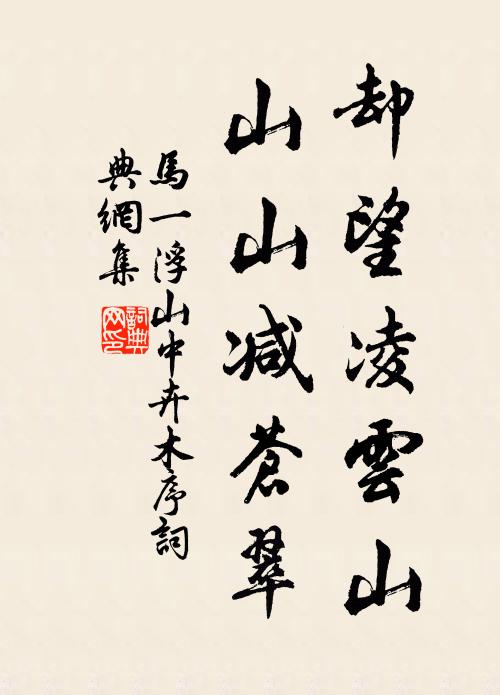 却望凌雲山
山山減蒼翠
馬一浮山中卉木序詞
典網集
詞典網印